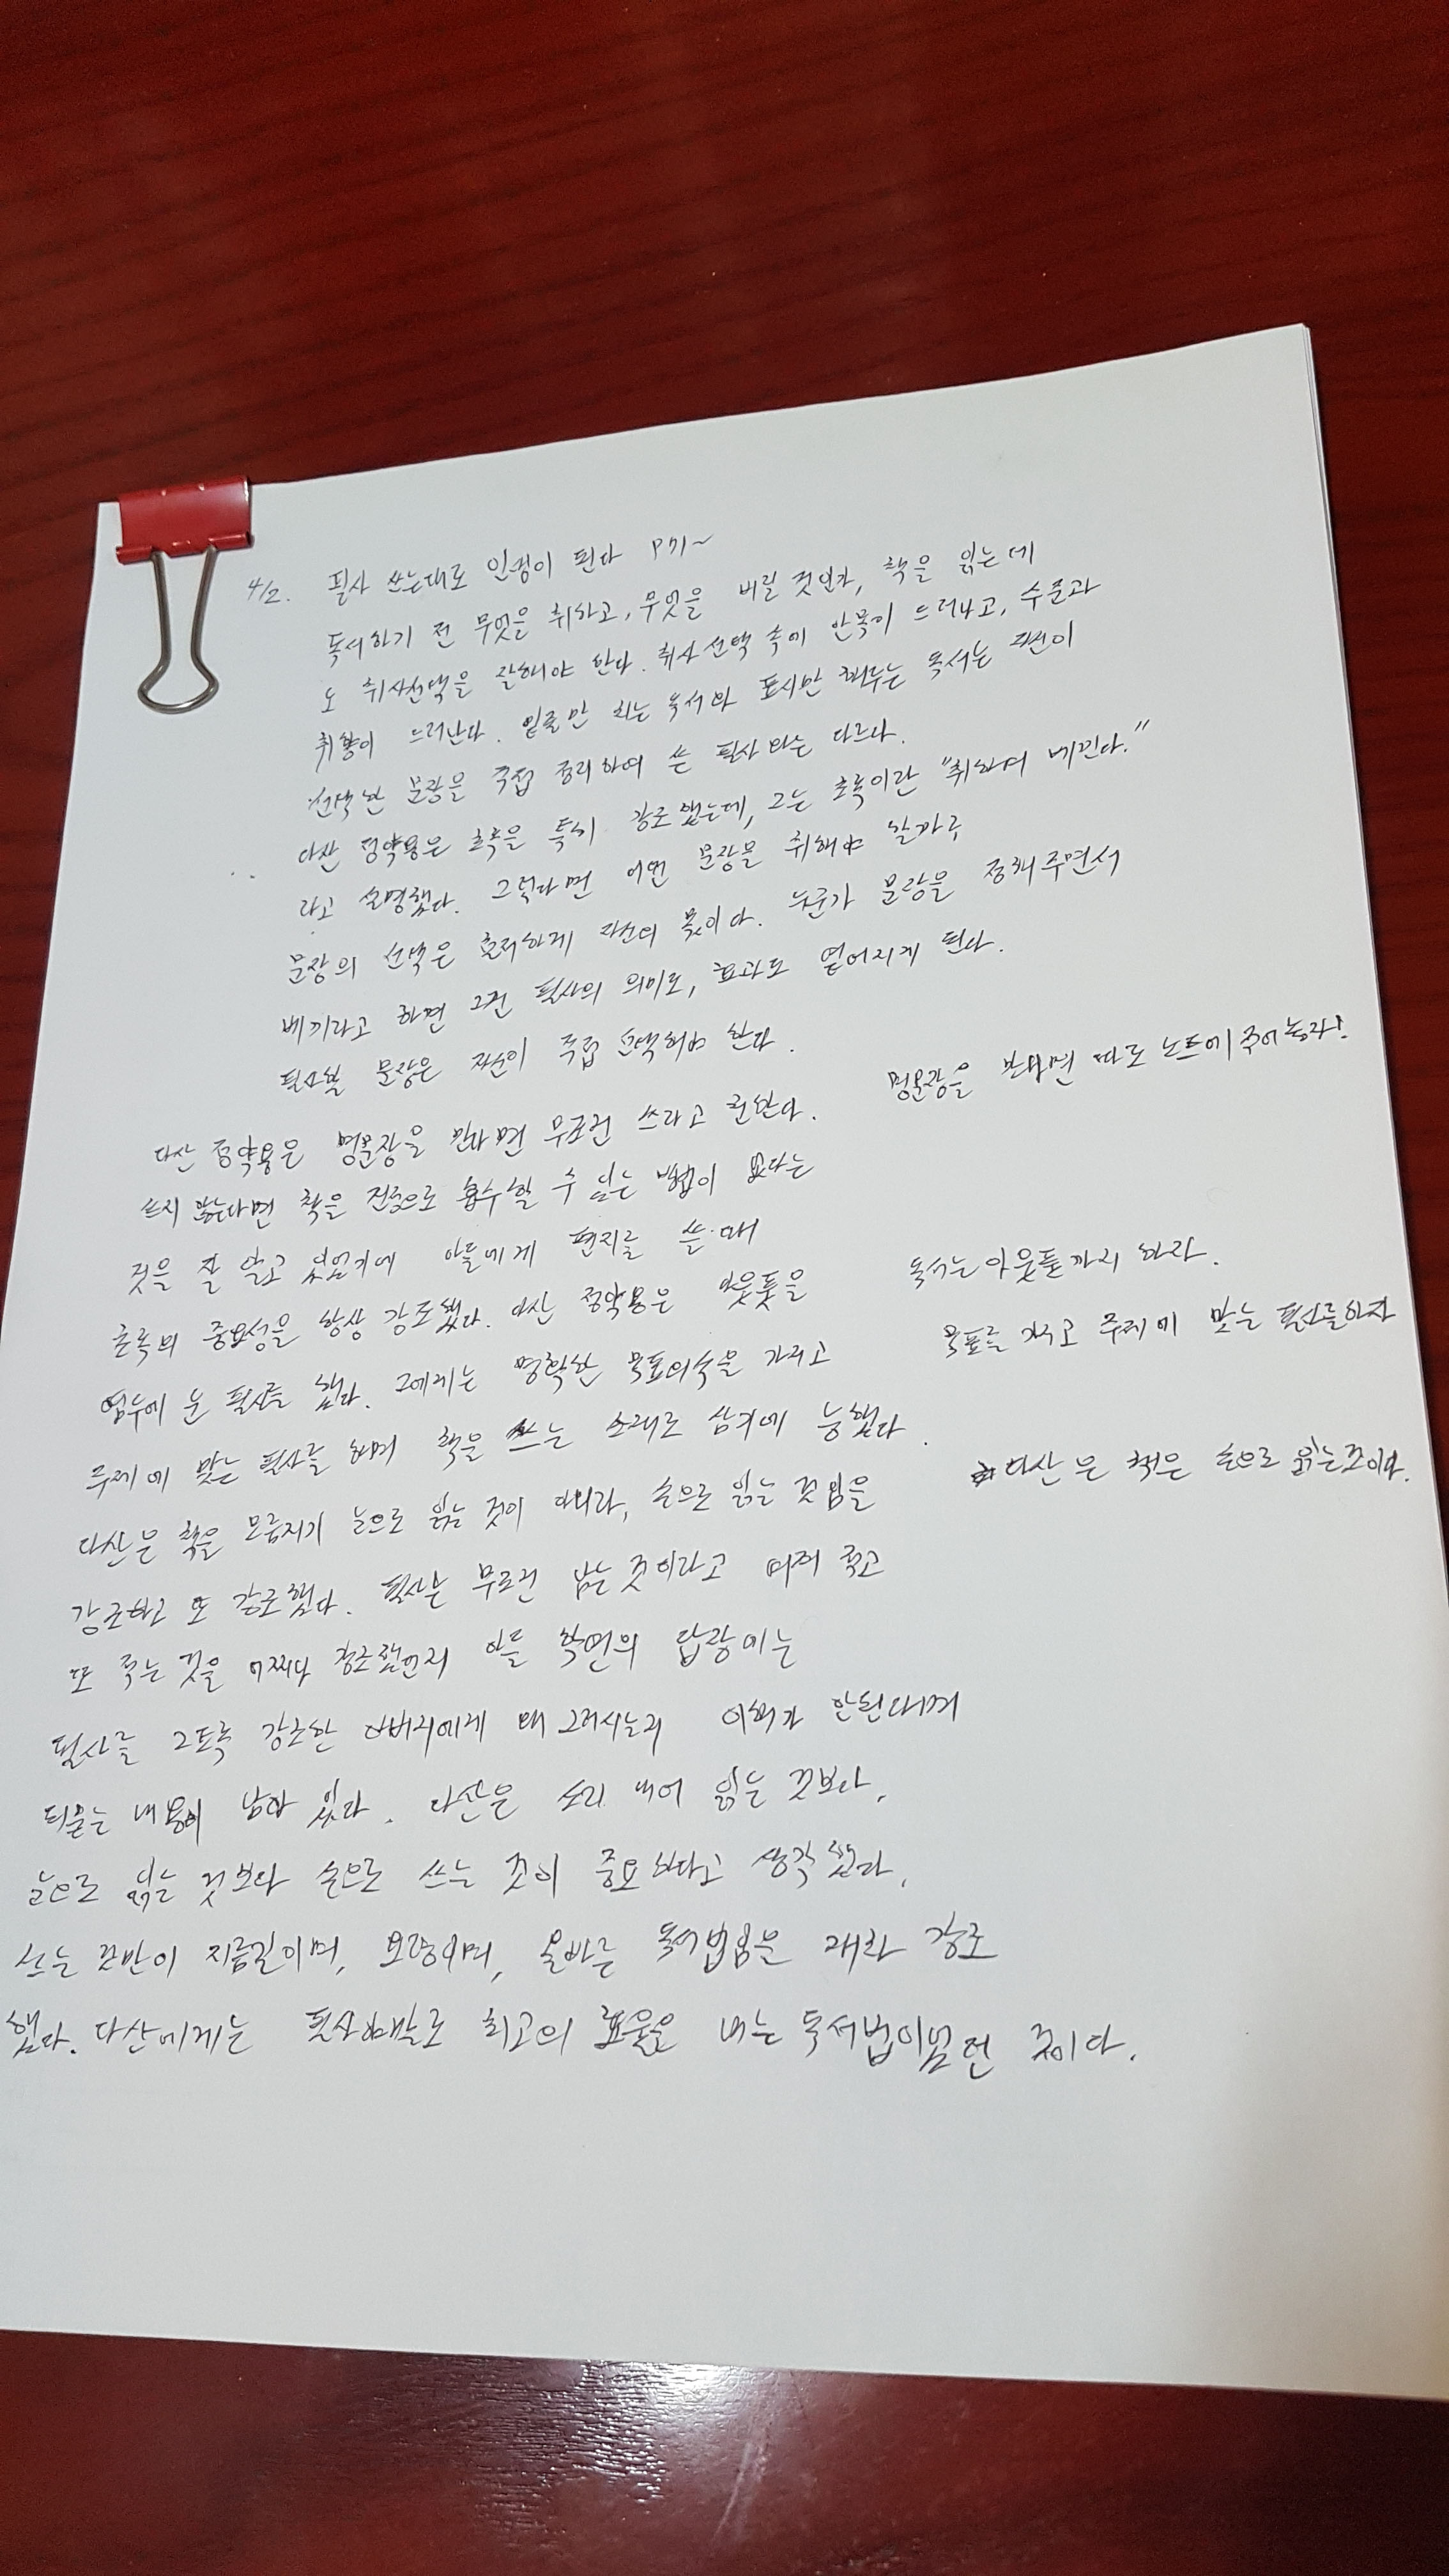 4/2. 필사 쓰는대로 인생이 된다 P71~
독서하기 전 무엇을 취하고, 무엇을 버릴 것인가, 책을 읽는데
도 취사선택을 잘해야 한다. 취사선택 속에 안목이 드러나고, 수준과
취향이 드러난다. 밑줄만 치는 독서와 표시만 해두는 독서는 자신이
선택한 문장을 직접 정리하여 쓴 필사와는 다르다.
다산 정약용은 초록을 특히 강조했는데, 그는 초록이란 "취하여 베낀다."
라고 설명했다. 그렇다면 어떤 문장을 취해야 할까?
문장의 선택은 오로지하게 자신의 몫이다. 누군가 문장을 정해주면서
베끼라고 하면 그건 필사의 의미도, 효과도 옅어지게 된다.
필사할 문장은 자신이 직접 선택해야 한다.
명문장을 만나면 따로 노트에 주어놓자!
다산 정약용은 명문장을 만나면 무조건 쓰라고 권한다.
쓰지 않는다면 책을 진정으로 흡수할 수 있는 방법이 없다는
것을 잘 알고 있었기에 아들에게 편지를 쓸 때
초록의 중요성을 항상 강조했다. 다산 정약용은 아웃풋을
독서는 아웃풋까지 하자.
염두에 둔 필사를 했다. 그에게는 명확한 목표의식을 가지고
목표를 갖고 주제에 맞는 필사를하자
주제에 맞는 필사를 하며 책을 쓰는 소재로 삼기에 능했다.
다산은 책은 손으로 읽는것이다.
다산은 책을 모름지기 눈으로 읽는 것이 아니라, 손으로 읽는 것임을
강조하고 또 강조했다. 필사는 무조건 남는 것이라고 여겨 적고
또 적는 것을 어찌나 강조했던지 아들 학연의 답장에는
필사를 그토록 강조한 아버지에게 왜 그러시는지 이해가 안된다며
되묻는 내용이 남아 있다. 다산은 소리 내어 읽는 것보다,
눈으로 읽는 것보다 손으로 쓰는 것이 중요하다고 생각했다.
쓰는 것만이 지름길이며, 요령이며, 올바른 독서법임을 재차 강조
했다. 다산에게는 필사야말로 최고의 효율을 내는 독서법이었던 것이다.